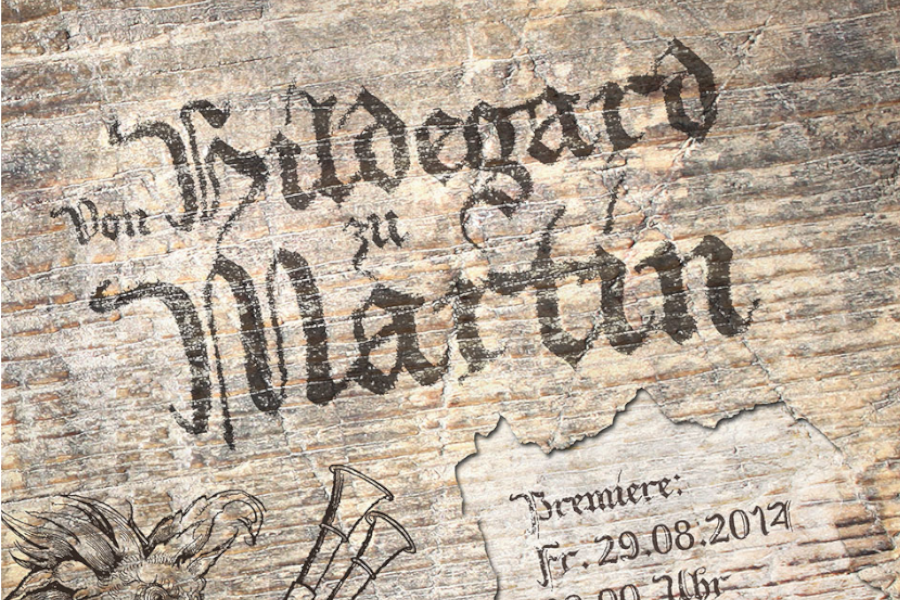 Von Hildegard
zu
Martin
Premiere:
Fr. 29.08.2014
Uhr